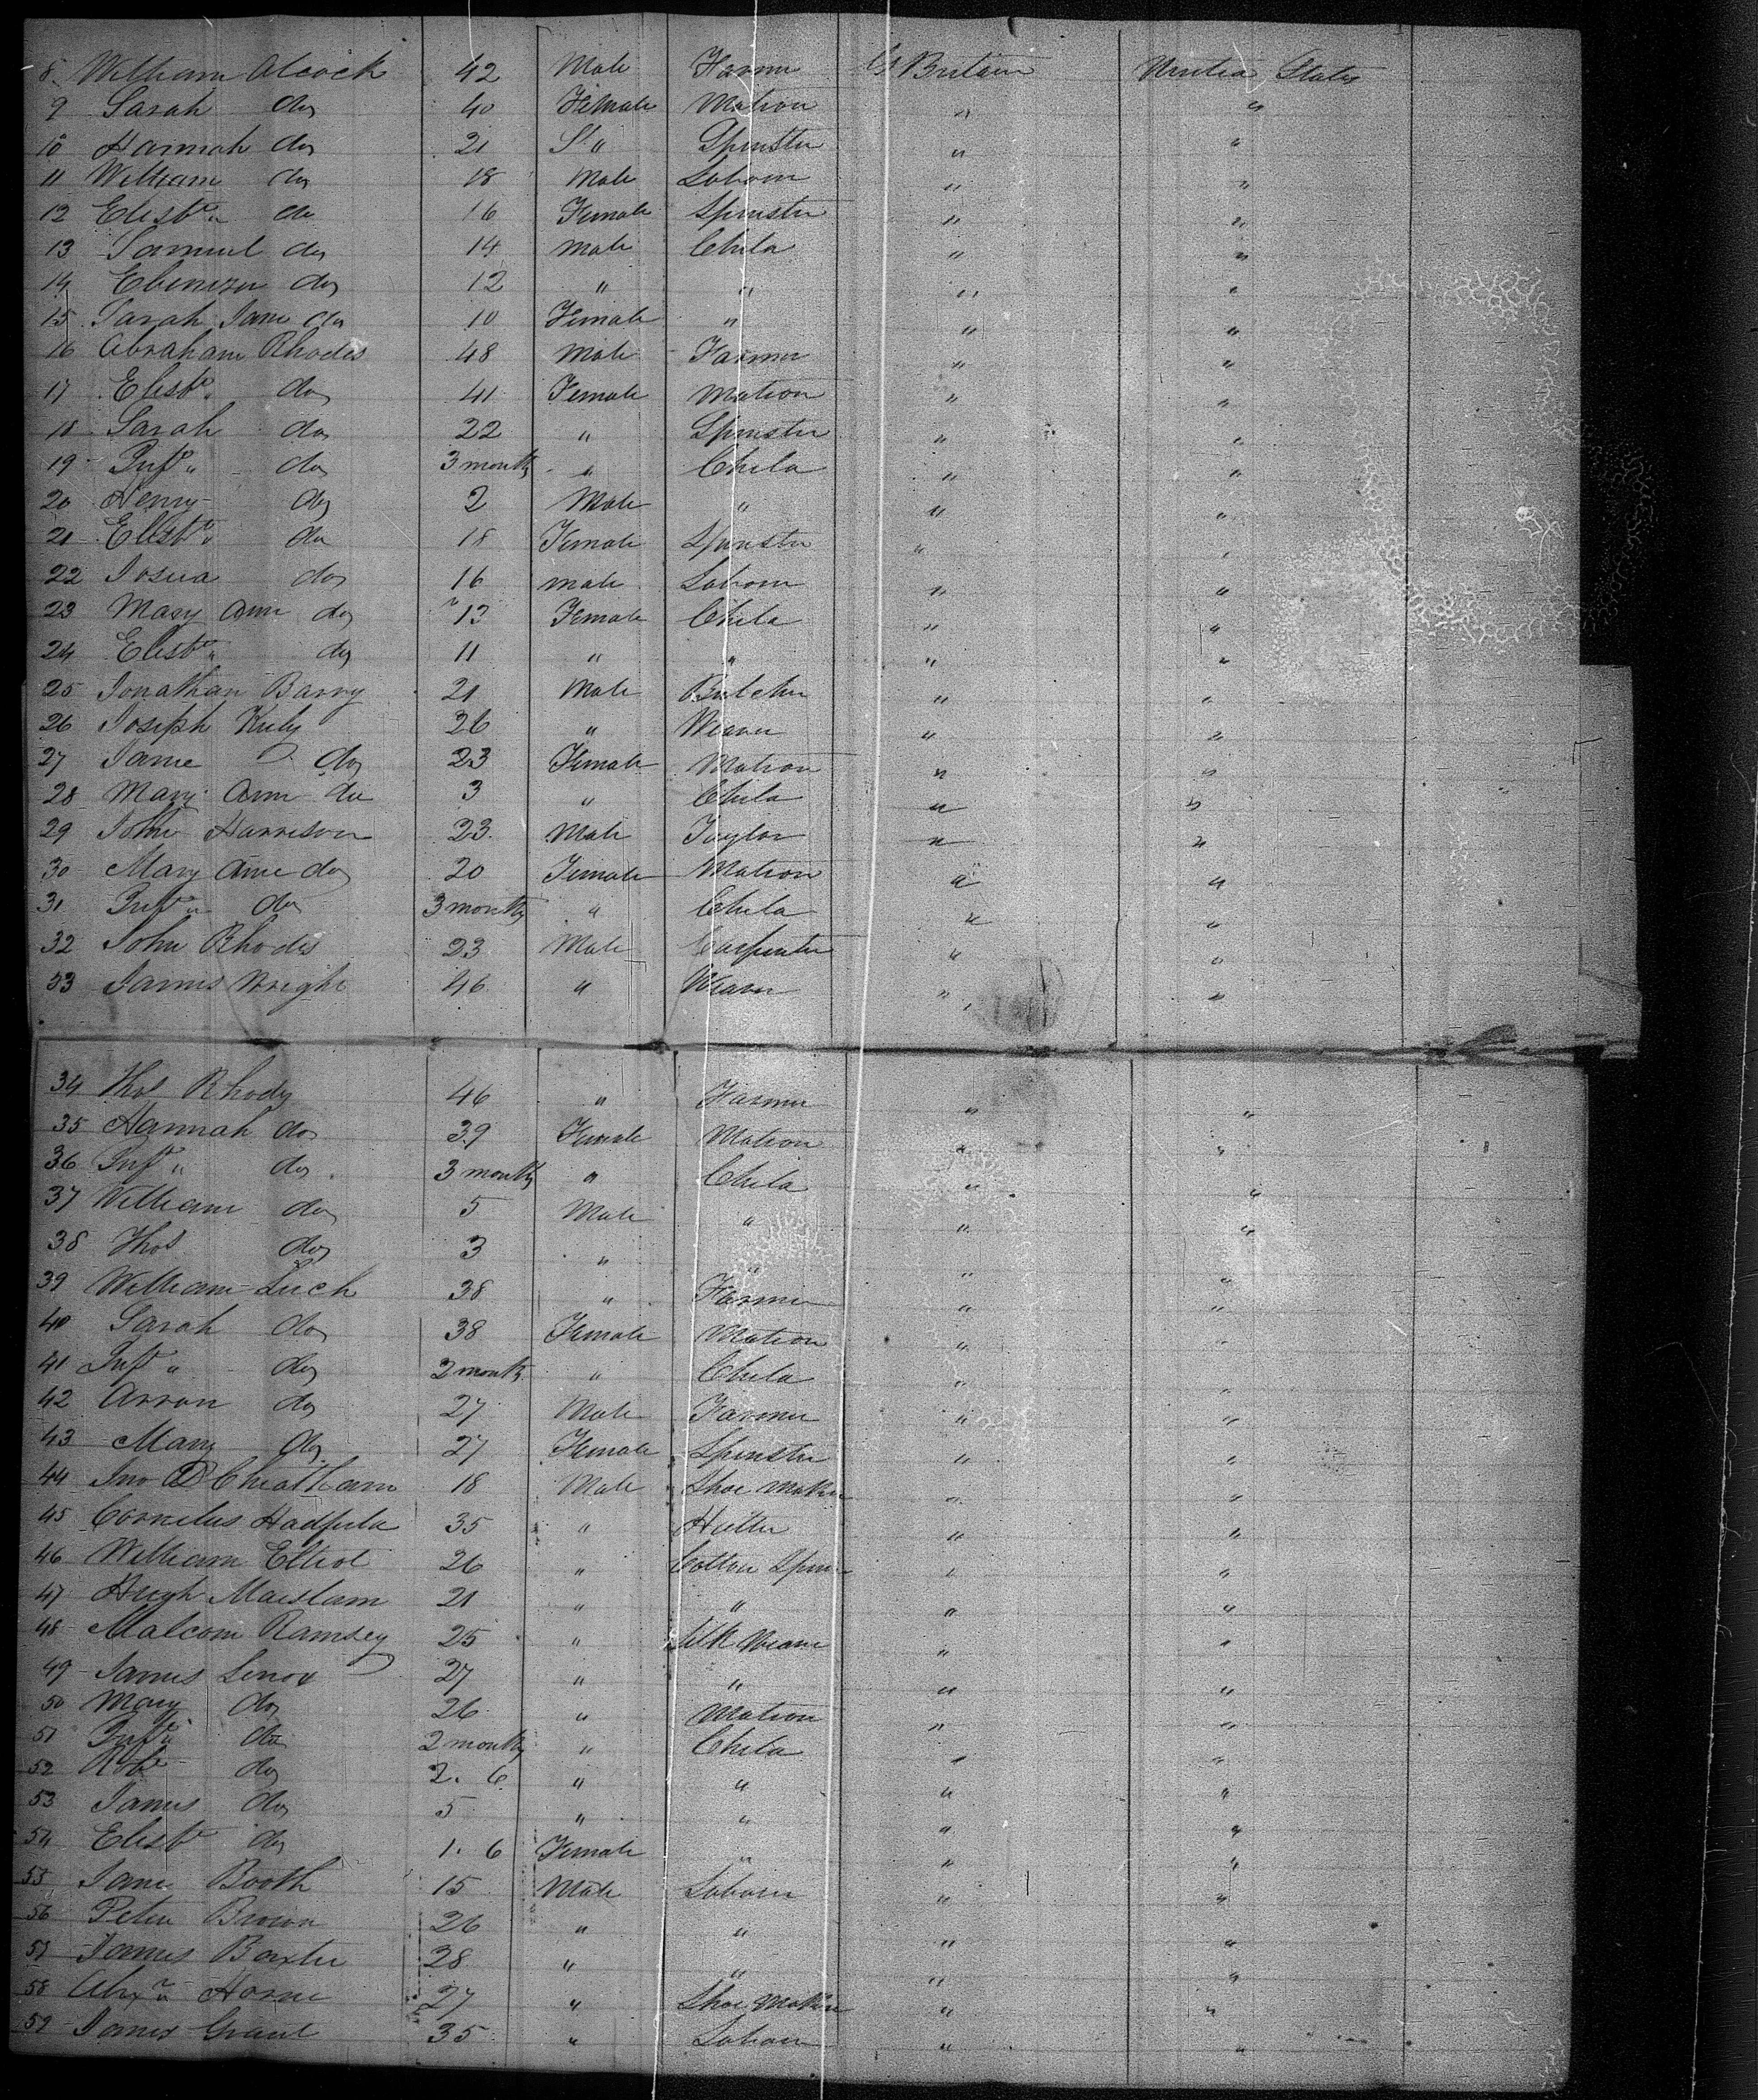 8. William Alcock 42 Male Farmer G Britain United States
9 Sarah do 40 Female Matron " "
10 Hannah do 21 " Spinster " "
11 William do 18 Male Laborer " "
12 Elisbth " do 16 Female Spinster " "
13 Samuel do 14 Male Child " "
14 Ebenezer do 12 " " " "
15 Sarah Jane do 10 Female " " "
16 Abraham Rhodes 48 Male Farmer " "
17 Elisbth " do 41 Female Matron " "
18 Sarah do 22 " Spinster " "
19 Inft " do 3 months " Child " "
20 Henry do 2 Male " " "
21 Elisbth " do 18 Female Spinster " "
22 Josua do 16 male Laborer " "
23 Mary Ann do 13 Female Child " "
24 Elisbth " do 11 " " " "
25 Jonathan Barry 21 Male Butcher " "
26 Joseph Kuly 26 " Weaver " "
27 Jane do 23 Female Matron " "
28 Mary Ann do 3 " Child " "
29 John Harrison 23 Male Taylor " "
30 Mary Ann do 20 Female Matron " "
31 Inft " do 3 months " Child " "
32 John Rhodes 23 Male Carpenter " "
33 James Wright 46 " Weaver " "
34 Thos Rhody 46 " Farmer " "
35 Hannah do 39 Female Matron " "
36 Inft " do 3 months " Child " "
37 William do 5 Male " " "
38 Thos do 3 " " " "
39 William Luch 38 " Farmer " "
40 Sarah do 38 Female Matron " "
41 Inft " do 2 months " Child " "
42 Arron do 27 Male Farmer " "
43 Mary do 27 Female Spinster " "
44 Jno D Cheatham 18 Male Shoe Maker " "
45 Cornelus Hadfield 35 " Hatter " "
46 William Elliot 26 " Cotton Spin " "
47 Hugh 21 " " " "
48 Malcom Ramsey 25 " Silk Weaver " "
49 James Lenox 27 " " " "
50 Mary do 26 " Matron " "
51 Inft " do 2 months " Child " "
52 Robt do 2. 6 " " " "
53 James do 5 " " " "
54 Elisbt do 1. 6 Female " " "
55 Jame Booth 15 Male Laborer " "
56 Peter Brown 26 " " " "
57 James Baxter 28 " " " "
58 Alexr " Horne 27 " Shoe Maker " "
59 James Grant 35 " Laborer " "